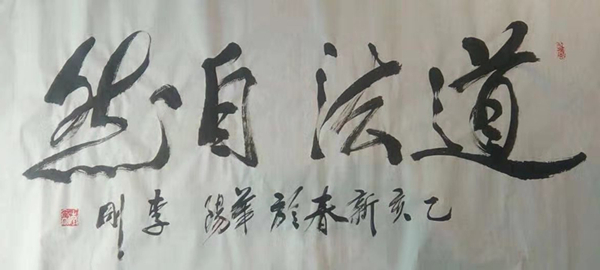 道法自然
乙亥新春於華陽李剛